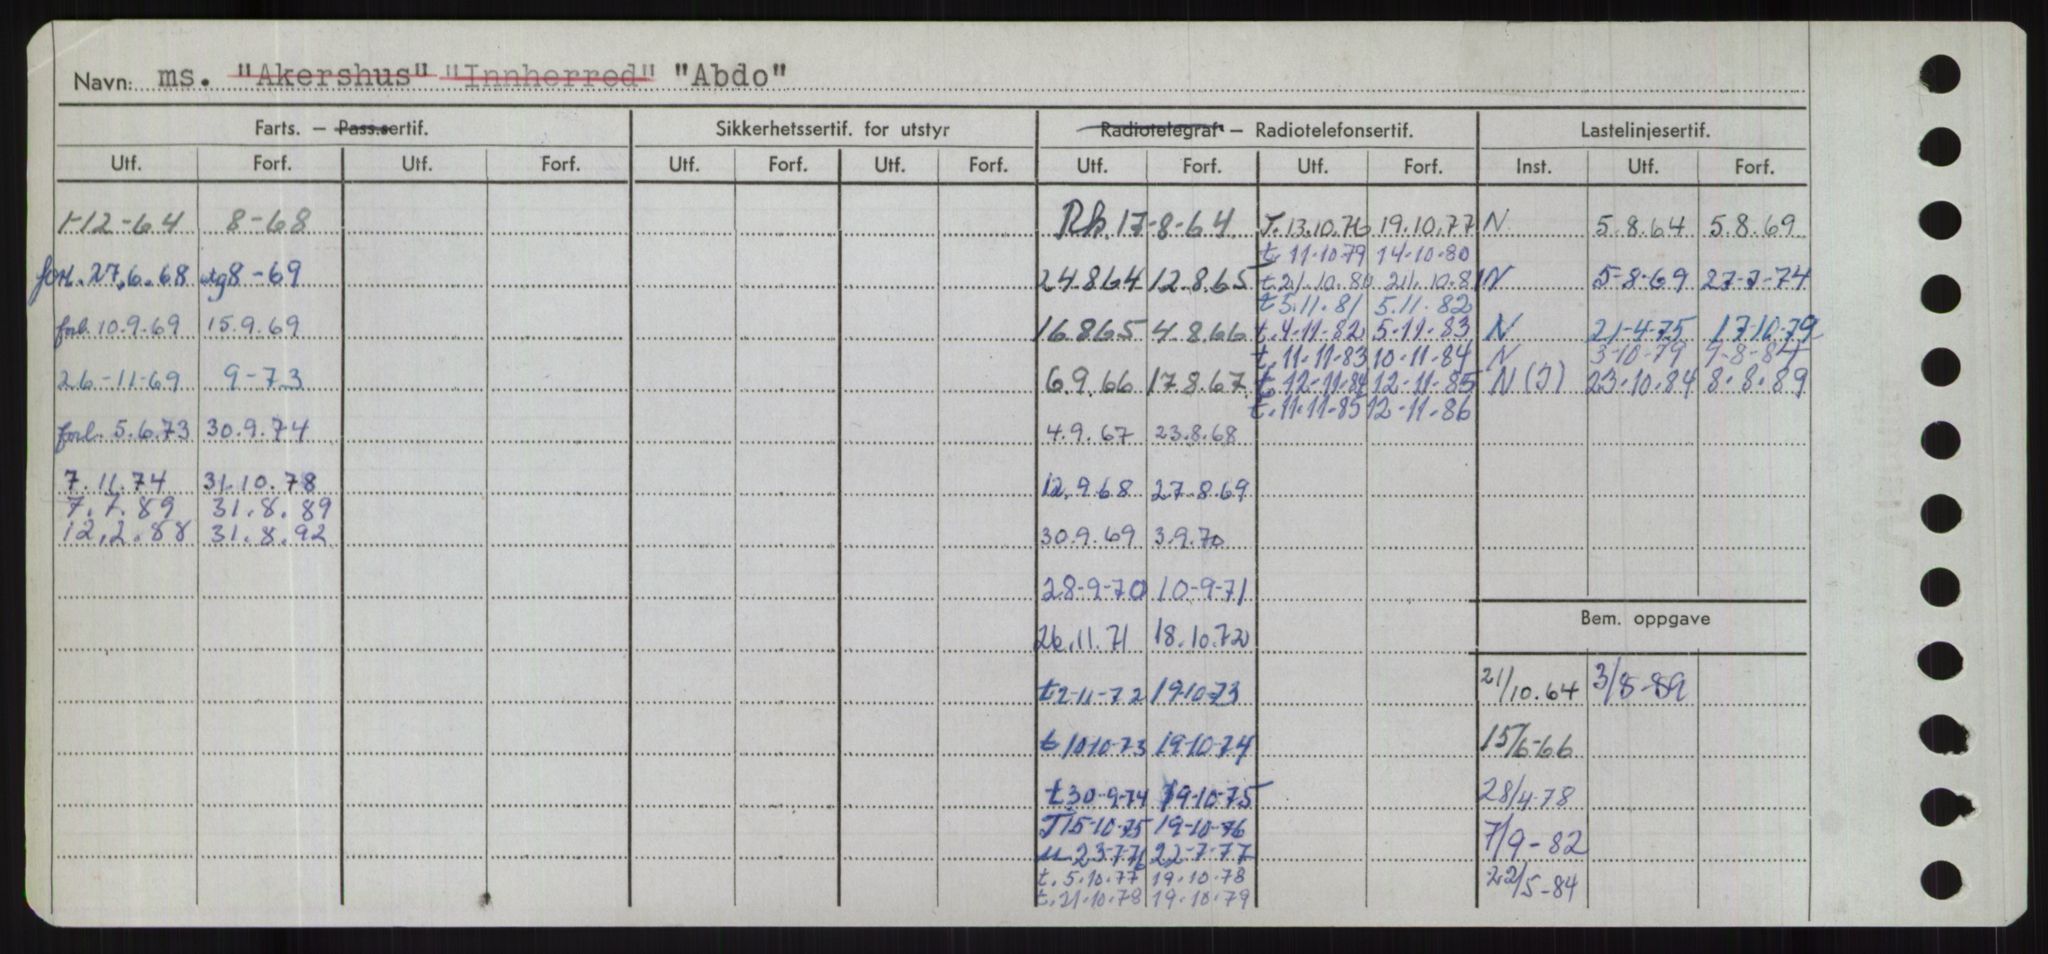 Navn: ms. "Akershus" "Innherred" "Abdo"
Farts. – Pass.sertif. Sikkerhetssertif. for utstyr Radiotelegraf – Radiotelefonsertif. Lastelinjesertif.
Utf. Forf. Utf. Forf. Utf. Forf. Utf. Forf. Utf. Forf. Utf. Forf. Inst. Utf. Forf.
1-12-64 8-68 Rh. 17-8-64 T. 13.10.76 19.10.77 N 5.8.64 5.8.69
t. 11-10-79 14-10-80
forl. 27.6.68 8-69 24.8.64 12.8.65 t. 21.10.80 21.10.81 N 5-8-69 27-7-74
t 5.11.81 5.11.82
forl. 10.9.69 15.9.69 16.8.65 4.8.66 t. 4-11-82 5-11-83 N 21-4-75 17-10-79
t. 11-11-83 10-11-84 N 3-10-79 9-8-84
26-11-69 9-73 6.9.66 17.8.67 t. 12-11-84 12-11-85 N (J) 23.10.84 8.8.89
t. 11.11-85 12-11-86
forl. 5.6.73 30.9.74 4.9.67 23.8.68
7.11.74 31.10.78 12.9.68 27.8.69
7.7.89 31.8.89
12.2.88 31.8.92 30.9.69 3.9.70
28-9-70 10-9-71
Bem. oppgave
26.11.71 18.10.72
t 2-11-72 19-10-73 21/10.64 3/8-89
t 10-10-73 19-10-74 15/6-66
t 30-9-74 19-10-75 28/4-78
T 15-10-75 19-10-76 7/9-82
u 23-7-76 22-7-77
t. 5.10.77 19.10.78 22/5-84
t. 21.10.78 19.10.79